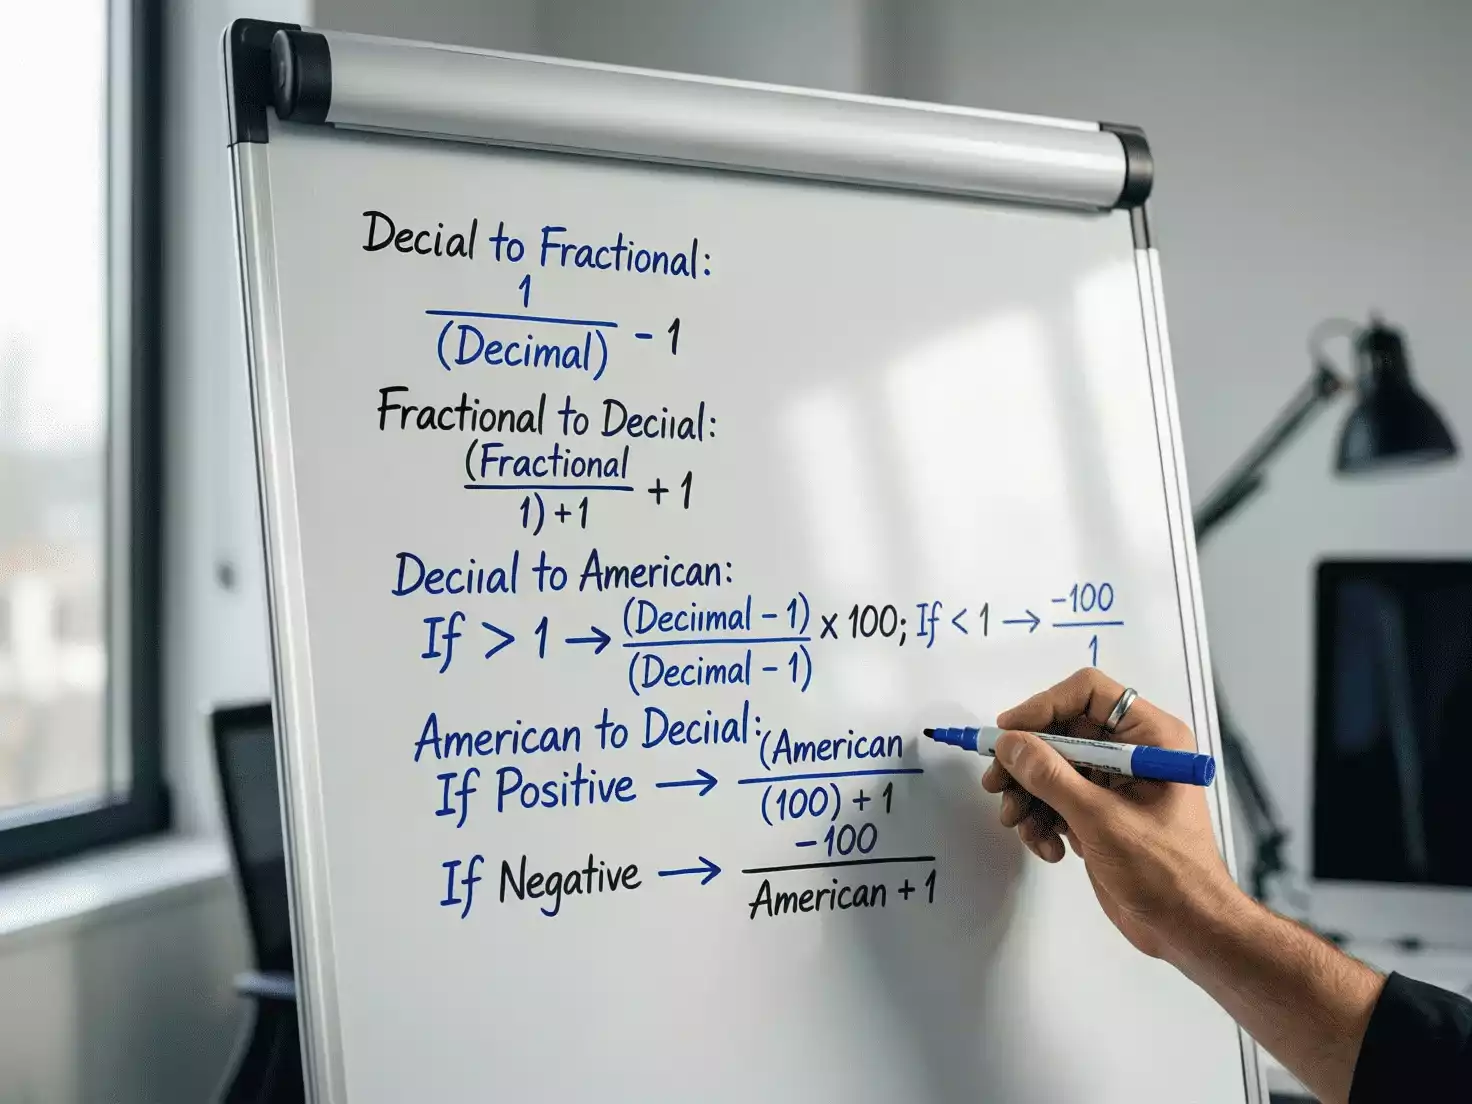 Decial to Fractional:
1
(Decimal) - 1
Fractional to Deciial:
(Fractional
1) + 1 + 1
Deciial to American:
If > 1 → (Deciimal - 1) x 100; If < 1 → -100
(Decimal - 1) 1
American to Deciial:
If Positive → (American
(100) + 1
If Negative → -100
American + 1